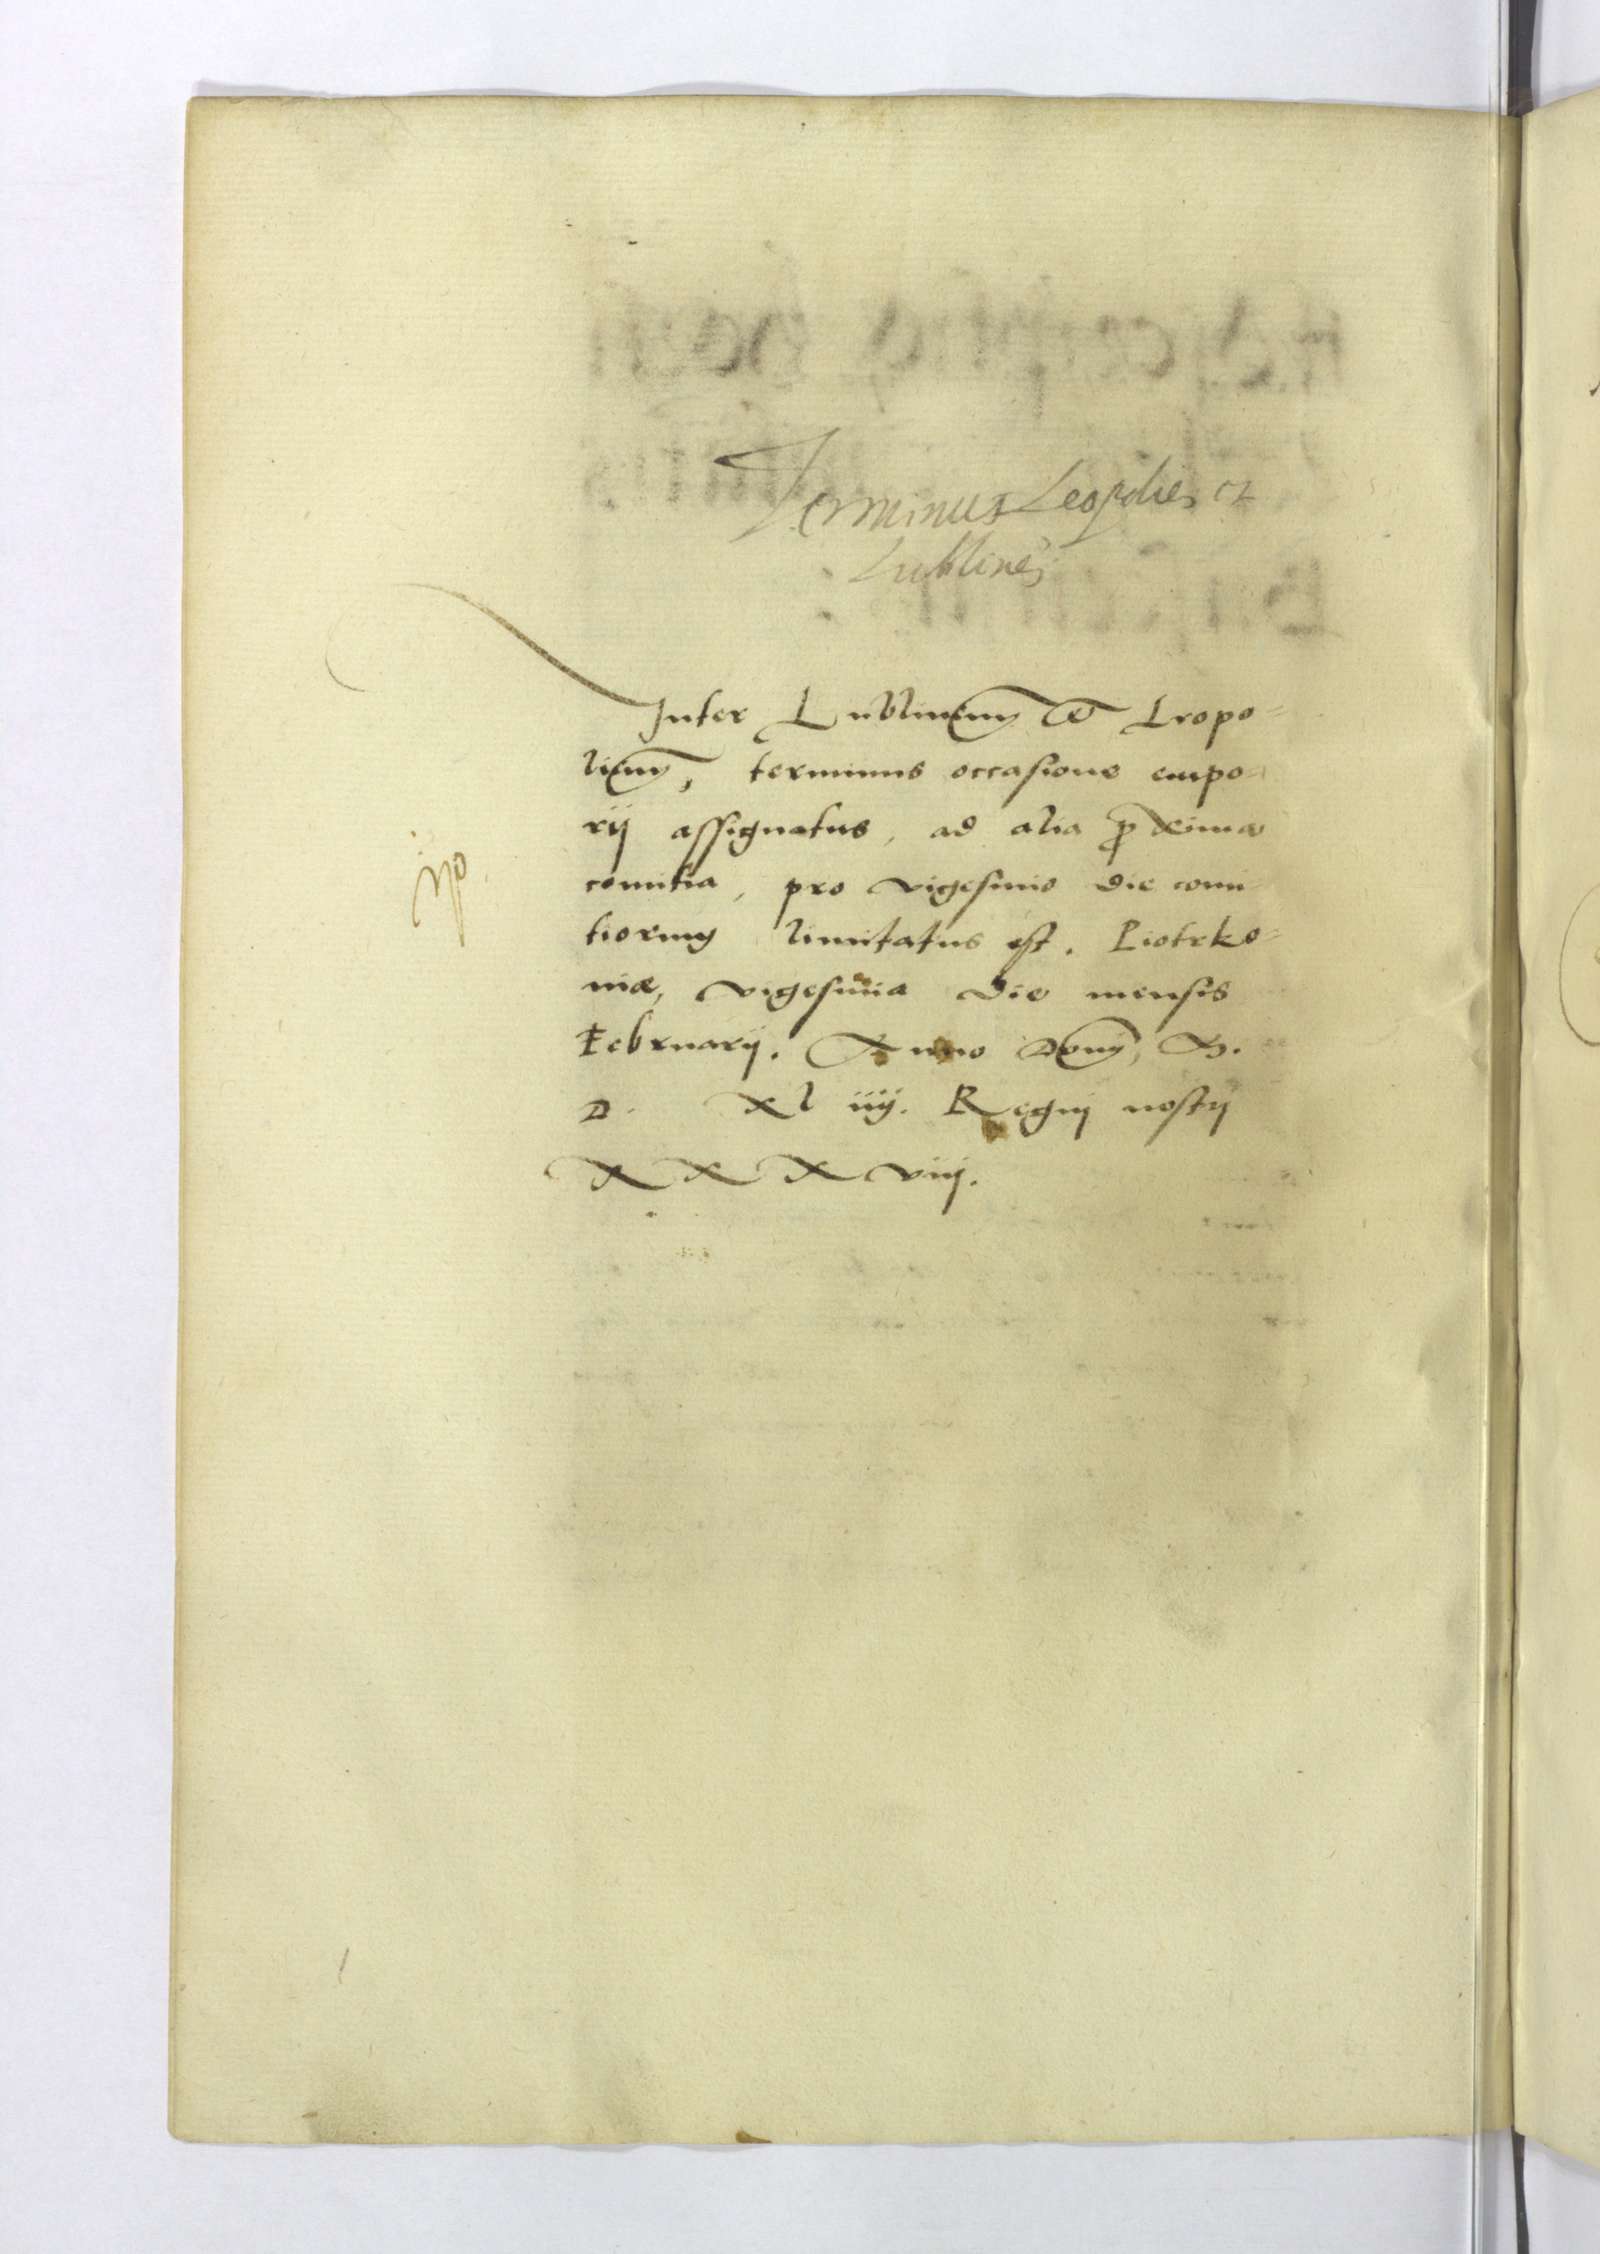 Terminus Leopolien et
Lublinen
Inter Lublinenm et Leopo-
lienm, terminus occasione empo-
rij assignatus, ad alia proxima
comitia, pro vigesimo die comi-
tiorum limitatus est. Piotrko-
uiæ, vigesima die mensis
Februarij. Anno Domj, M.
D. Xl iiij. Regnj nostrj
XXXviij.